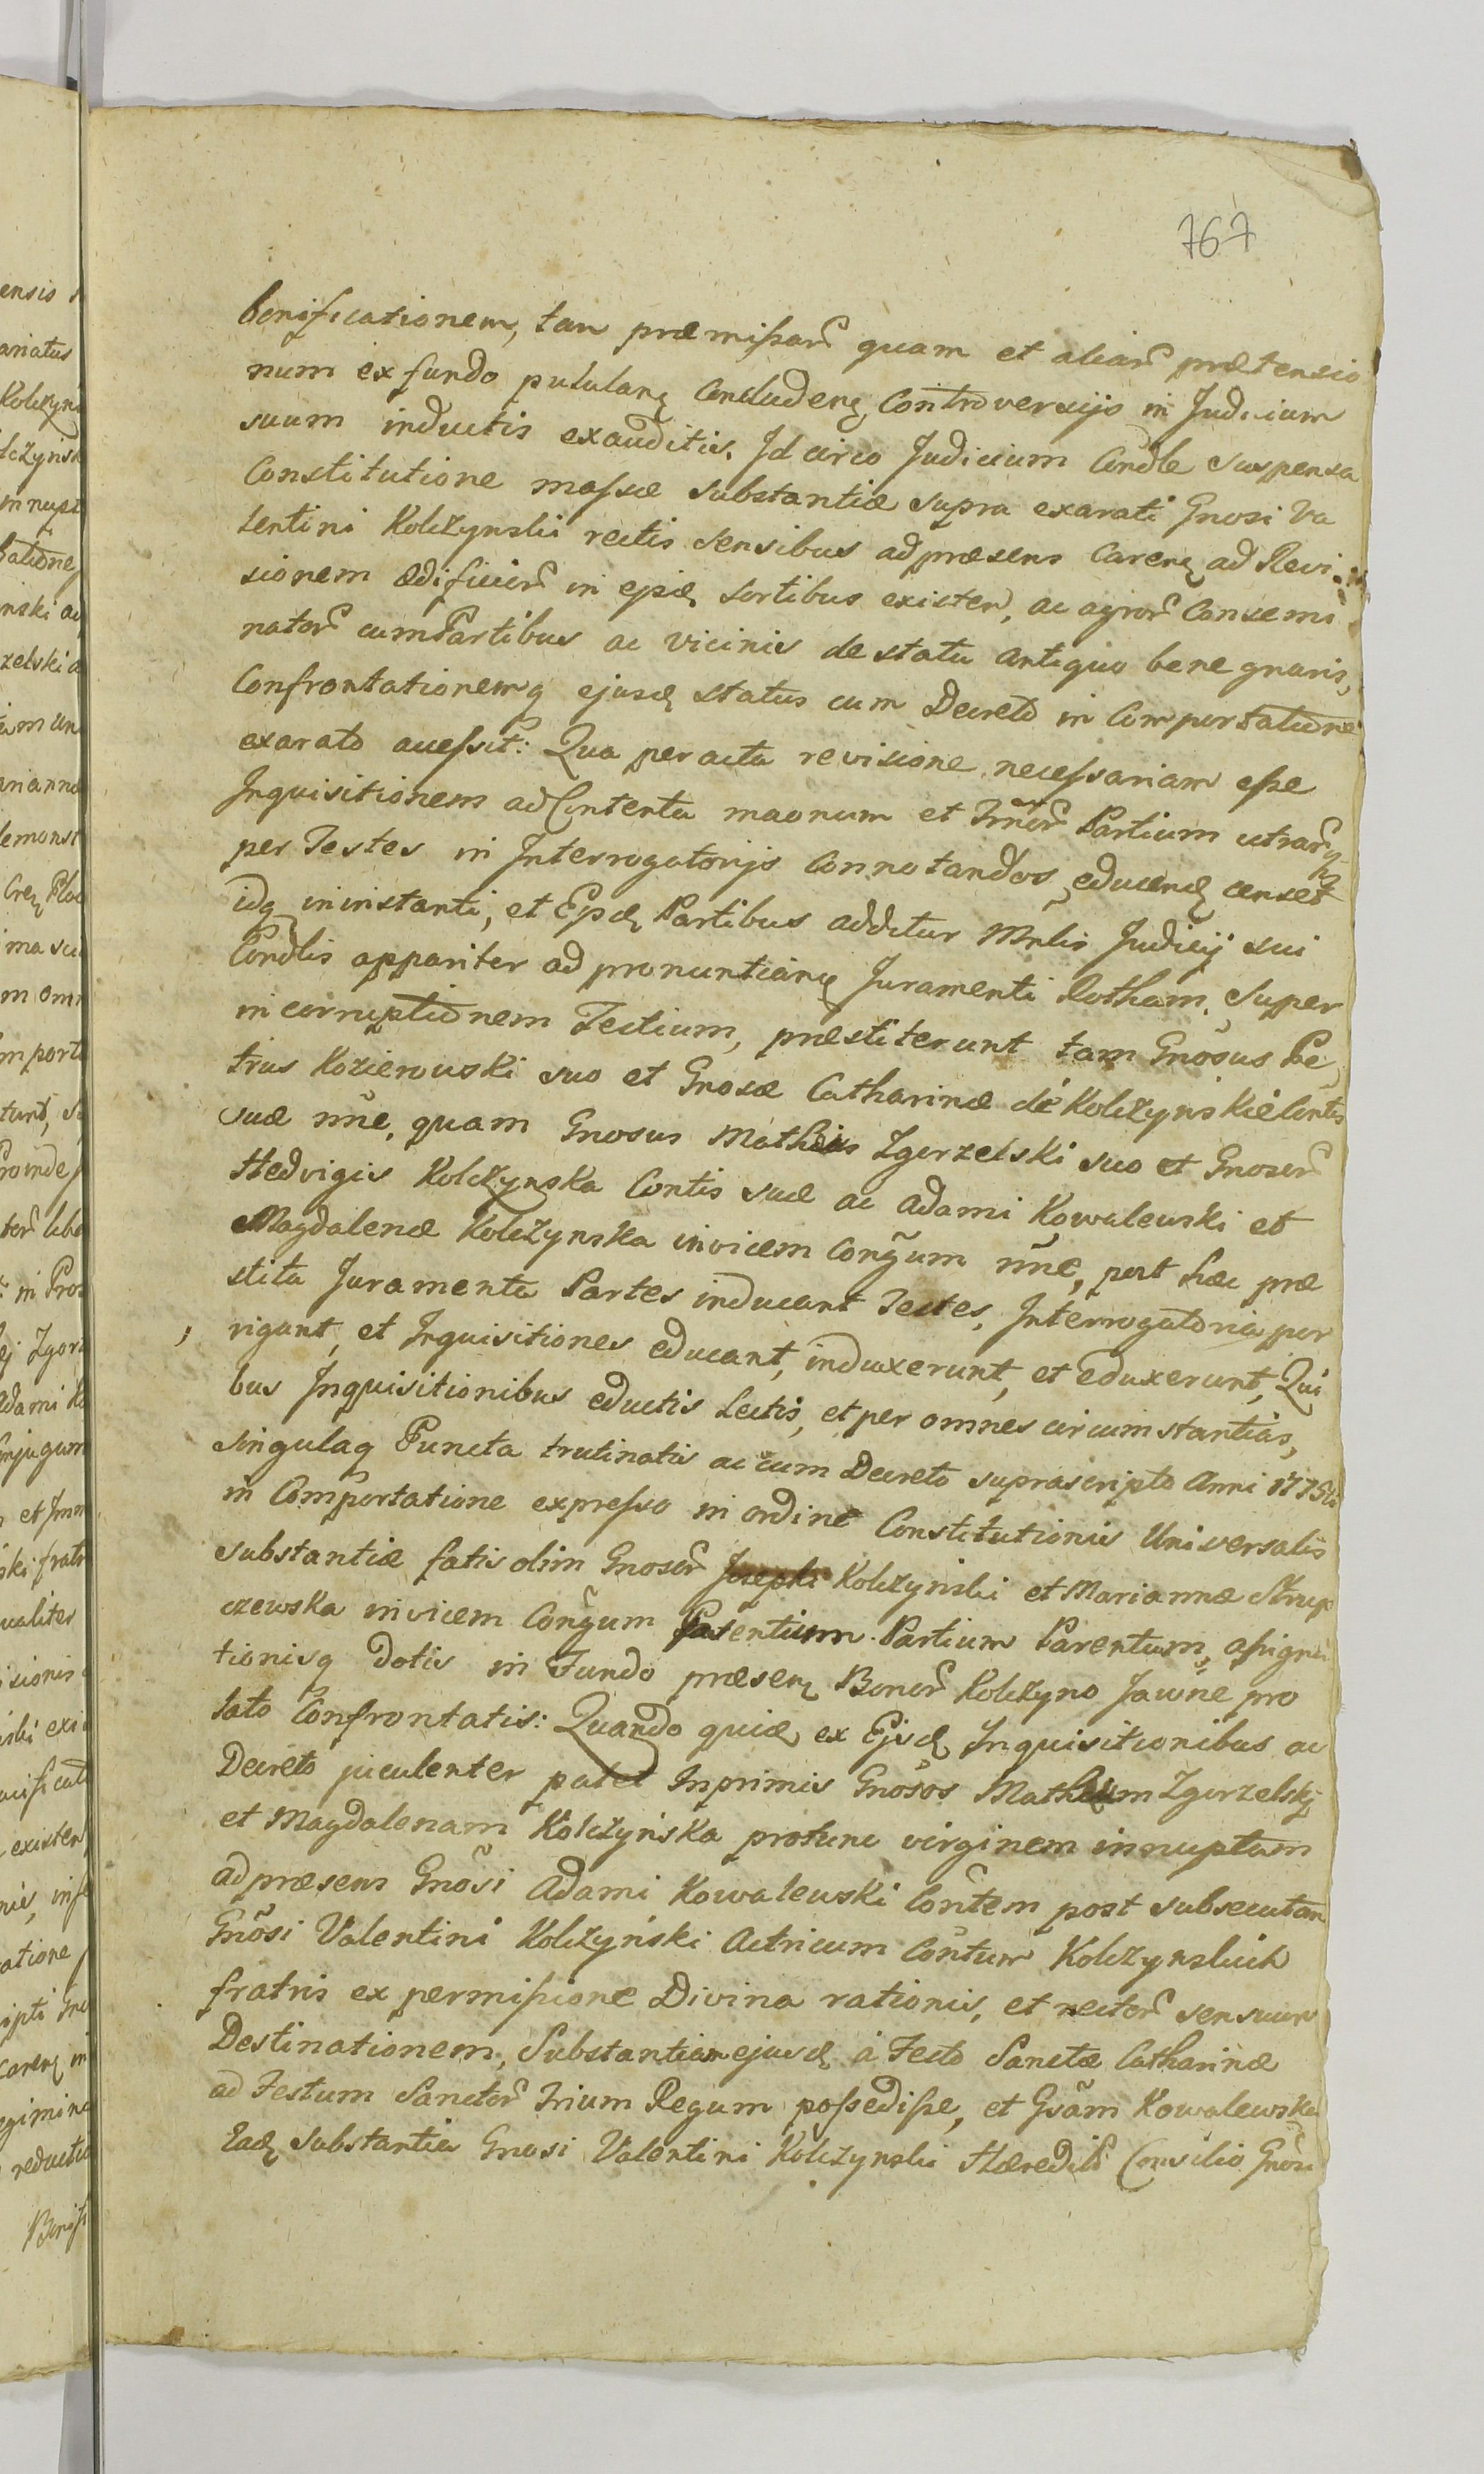 767
bonificationem, tam præmissar̃ quam et aliar̃ prætensio
num ex fundo pululanȩ Concludenȩ, Controversijs in Judicium
suum inductis exauditis. Id circo Judicium Condle suspensa
Constitutione massæ substantiæ supra exarati Gnosi Va
lentini Kolczynski rectis sensibus ad præsens Carenȩ ad Revi-
sionem ædificior̃ in ejsdȩ sortibus existen, ac agror̃ Consemi
nator̃ cum Partibus ac vicinis de statu antiquo bene gnaris,
Confrontationemq ejusdȩ status cum Decreto in Comportatione
exarato accessit: Qua peracta revisione, necessariam esse
Inquisitionem ad Contenta maonum et Irñor̃ Partium utrarq̃
per Testes in Interrogatorijs Connotandos, educendȩ censet
idq in instanti, et Ejsdȩ Partibus additur Mnlis Judicij sui
Condlis appariter ad pronuntianȩ Juramenti Rotham, super
incorruptionem Testium, præstiterunt tam Gnõsus Pe
trus Kozierowski suo et Gnosæ Catharinæ de Kolczynskie Contis
suæ nñe, quam Gnosus Matheus Zgorzelski suo et Gnosor̃
Hedvigis Kolczynska Contis suæ ac Adami Kowalewski et
Magdalenæ Kolczynska invicem Cong̃um nñe, post hæc præ
stita Juramenta Partes inducant Testes, Interrogatoria por
rigant, et Inquisitiones educant, induxerunt, et eduxerunt, Qui
bus Inquisitionibus eductis Lectis, et per omnes circumstantias,
singulaq Puncta trutinatis ac cum Decreto suprascripto Anni 1775ti
in Comportatione expresso in ordine Constitutionis Universalis
substantiæ fatis olim Gnosor̃ Josephi Kolczynski et Mariannæ Strup
czewska invicem Cong̃um Parentium Partium Parentum, assigna
tionisq dotis in Fundo præsenȩ Bonor̃ Kolczyno Jawne pro
lato Confrontatis: Quando quidȩ ex Ejsdȩ Inquisitionibus ac
Decreto luculenter patet Inprimis Gnõsos Matheum Zgorzelskj
et Magdalenam Kolczynska protunc virginem innuptam
ad præsens Gnõsi Adami Kowalewski Contem post subsecutam
Gnõsi Valentini Kolczyński Actricum Contum Kolczynskich
fratris ex permissione Divina rationis, et rector̃ sensuum
Destinationem, Substantiam ejusdȩ à Festo Sanctæ Catharinæ
ad Festum Sanctor̃ Trium Regum possedisse, et Gsãm Kowalewska
Eadȩ substantia Gnosi Valentini Kolczynski Consilio Gnõsi